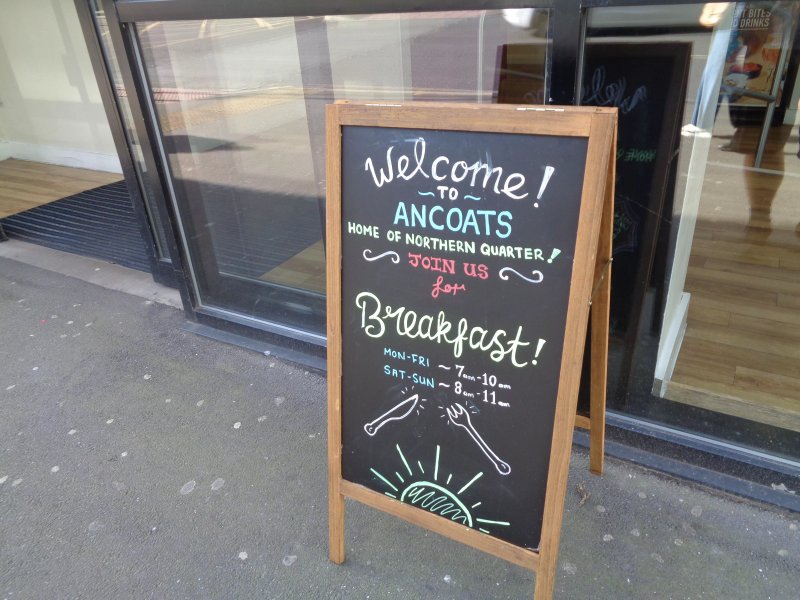 Welcome!
~ TO ~
ANCOATS
HOME OF NORTHERN QUARTER!
JOIN US
for
Breakfast!
MON-FRI ~ 7am-10am
SAT-SUN ~ 8am-11am
BITES
DRINKS